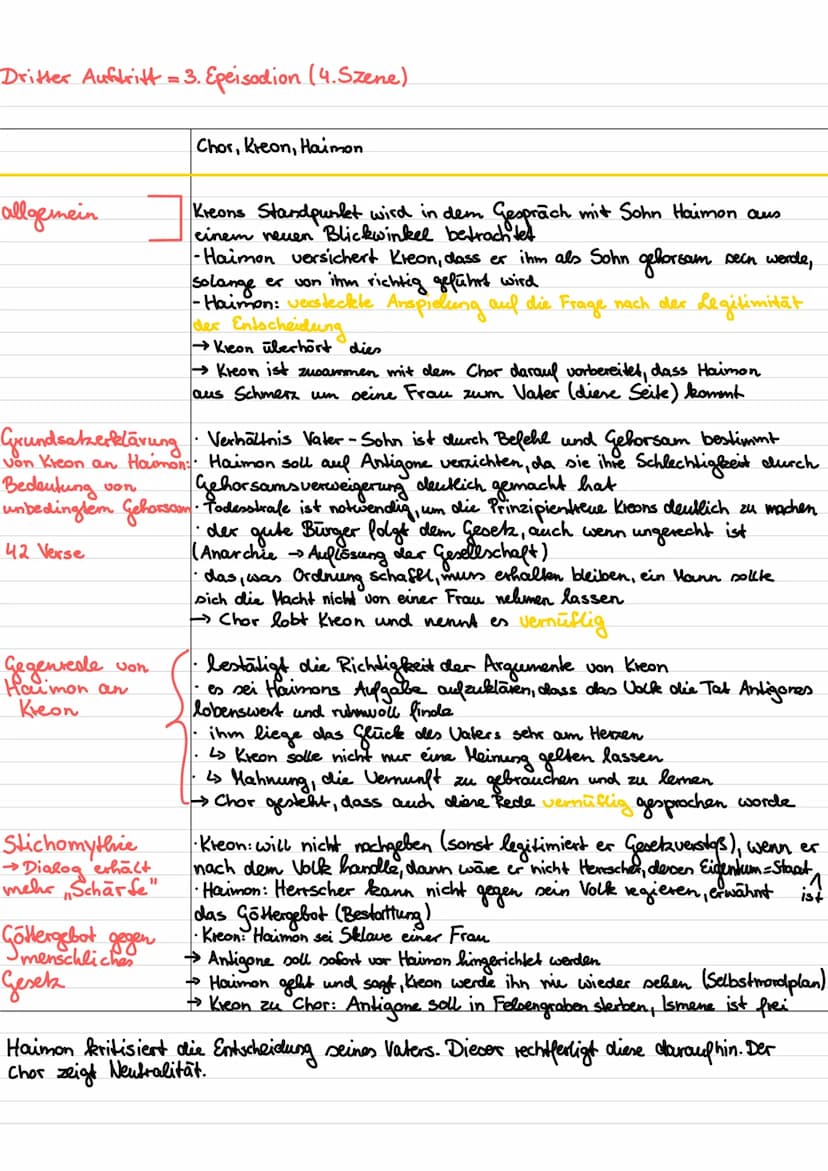 Dritter Auftritt = 3. Epeisodion (4. Szene)
Chor, Kreon, Haimon
allgemein
Kreons Standpunkt wird in dem Gespräch mit Sohn Haimon aus
einem neuen Blickwinkel betrachtet
- Haimon versichert Kreon, dass er ihm als Sohn gehorsam sein werde,
solange er von ihm richtig geführt wird
- Haimon: versteckte Anspielung auf die Frage nach der Legitimität
der Entscheidung
→ Kreon überhört dies
→ Kreon ist zusammen mit dem Chor darauf vorbereitet, dass Haimon
aus Schmerz um seine Frau zum Vater (diese Seite) kommt
Grundsatzerklärung
von Kreon an Haimon:
Bedeutung von
unbedingtem Gehorsam
42 Verse
· Verhältnis Vater - Sohn ist durch Befehl und Gehorsam bestimmt
· Haimon soll auf Antigone verzichten, da sie ihre Schlechtigkeit durch
Gehorsamsverweigerung deutlich gemacht hat
· Todesstrafe ist notwendig, um die Prinzipientreue Kreons deutlich zu machen
· der gute Bürger folgt dem Gesetz, auch wenn ungerecht ist
(Anarchie → Auflösung der Gesellschaft)
· das, was Ordnung schafft, muss erhalten bleiben, ein Mann sollte
sich die Macht nicht von einer Frau nehmen lassen
→ Chor lobt Kreon und nennt es vernüftig
Gegenrede von
Haimon an
Kreon
· bestätigt die Richtigkeit der Argumente von Kreon
· es sei Haimons Aufgabe aufzuklären, dass das Volk die Tat Antigones
lobenswert und ruhmvoll finde
· ihm liege das Glück des Vaters sehr am Herzen
· ↳ Kreon solle nicht nur eine Meinung gelten lassen
· ↳ Mahnung, die Vernunft zu gebrauchen und zu lernen
→ Chor gesteht, dass auch diese Rede vernüftig gesprochen worde
Stichomythie
→ Dialog erhält
mehr „Schärfe"
· Kreon: will nicht nachgeben (sonst legitimiert er Gesetzverstoß), wenn er
nach dem Volk handle, dann wäre er nicht Herrscher, deren Eigentum = Staat
ist
· Haimon: Herrscher kann nicht gegen sein Volk regieren, erwähnt
das Göttergebot (Bestattung)
Göttergebot gegen
menschliches
Gesetz
· Kreon: Haimon sei Sklave einer Frau
→ Antigone soll sofort vor Haimon hingerichtet werden
→ Haimon geht und sagt, Kreon werde ihn nie wieder sehen (Selbstmordplan)
→ Kreon zu Chor: Antigone soll in Felsengraben sterben, Ismene ist frei
Haimon kritisiert die Entscheidung seines Vaters. Dieser rechtfertigt diese daraufhin. Der
Chor zeigt Neutralität.